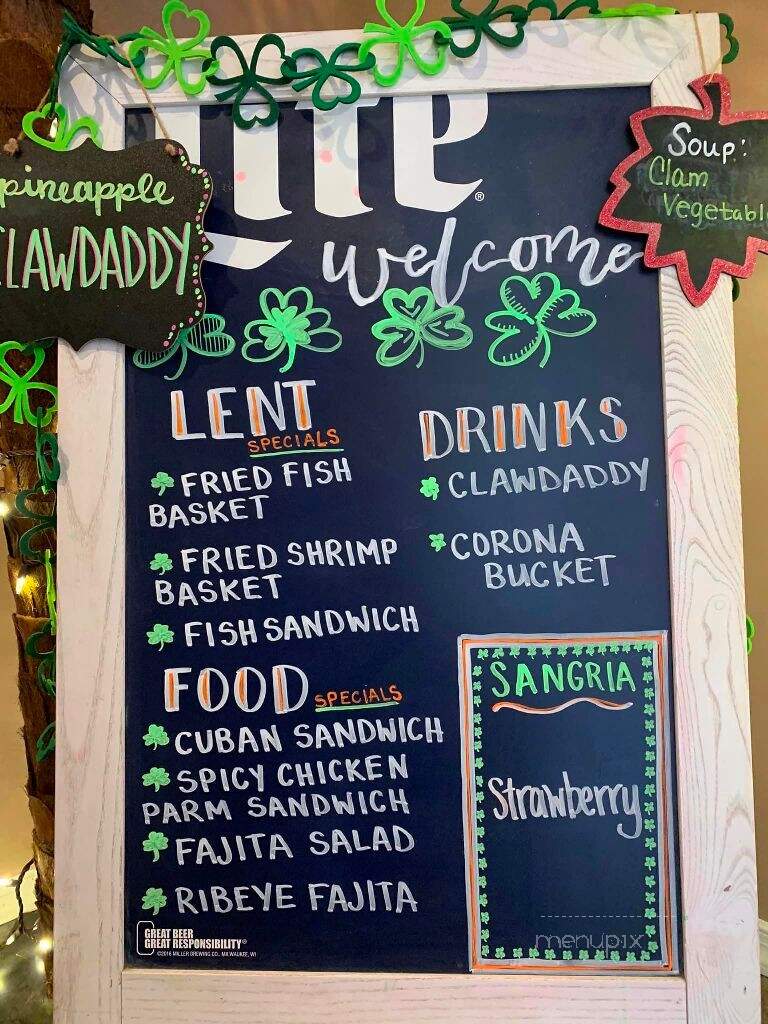 Lite
®
welcome
pineapple
CLAWDADDY
Soup:
Clam
Vegetabl
LENT
SPECIALS
FRIED FISH
BASKET
FRIED SHRIMP
BASKET
FISH SANDWICH
FOOD SPECIALS
CUBAN SANDWICH
SPICY CHICKEN
PARM SANDWICH
FAJITA SALAD
RIBEYE FAJITA
DRINKS
CLAWDADDY
CORONA
BUCKET
SANGRIA
Strawberry
GREAT BEER
GREAT RESPONSIBILITY®
©2016 MILLER BREWING CO., MILWAUKEE, WI
menupix